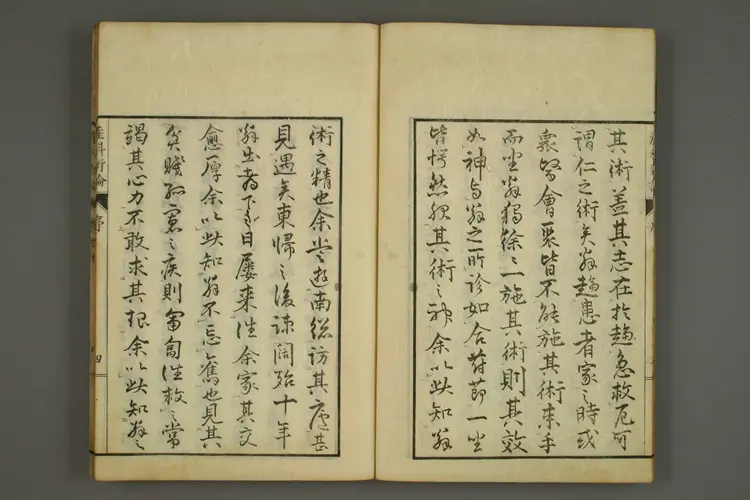 其術蓋其志在於趨急救厄可
謂仁之術矣翁趨患者家之時或
衆醫會聚皆不能施其術束手
而坐翁獨徐々施其術則其效
如神与翁之所診如合符節一坐
皆愕然服其術之神余以此知翁
術之精也余嘗遊南総訪其廬甚
見遇矣東帰之後疎闊殆十年
翁出都下日屡来往余家其交
愈厚余以此知翁不忘舊也見其
貧賤孤寡之疾則匍匐往救之常
竭其心力不敢求其报余以此知翁之
産科新論 序 四